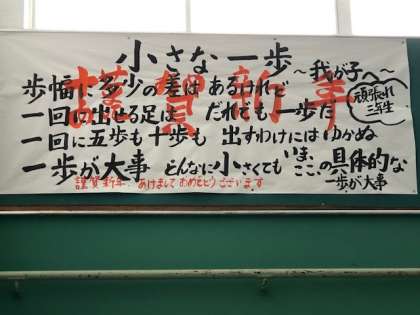 小さな一歩
〜我が子へ〜
頑張れ
三年生
謹賀新年
歩幅に多少の差はあるけれど
一回に出せる足は だれでも一歩だ
一回に五歩も十歩も 出すわけにはゆかぬ
一歩が大事 どんなに小さくても いま、ここ、の具体的な
一歩が大事
謹賀新年 あけまして おめでとうございます